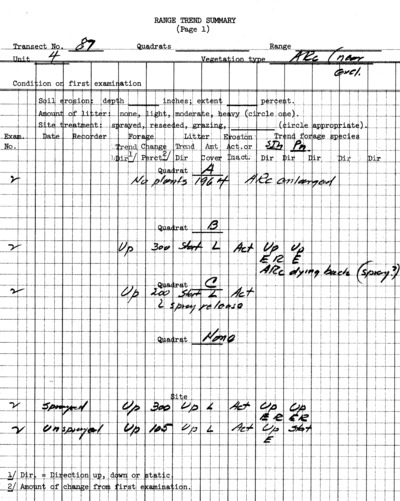 RANGE TREND SUMMARY
(Page 1)
Transect No. 87 Quadrats Range
Unit 4 Vegetation type ARc (near
excl.
Condition on first examination
Soil erosion: depth ______ inches; extent ______ percent.
Amount of litter: none, light, moderate, heavy (circle one).
Site treatment: sprayed, reseeded, grazing, ______ (circle appropriate).
Exam. Date Recorder Forage Litter Erosion Trend forage species
No. Trend Change Trend Amt Act.or STh Pn.
Dir1/ Perct2/ Dir Cover Inact. Dir Dir Dir Dir Dir
Quadrat A
2 No plants 1964 ARc enlarged
Quadrat B
2 Up 300 Stat L Act Up Up
E R E
ARc dying back (spray?)
Quadrat C
2 Up 200 Stat L Act
2 spray release
Quadrat None
Site
2 Sprayed Up 300 Up L Act Up Up
E R ER
2 Unsprayed Up 105 Up L Act Up Stat
E
1/ Dir. = Direction up, down or static.
2/ Amount of change from first examination.